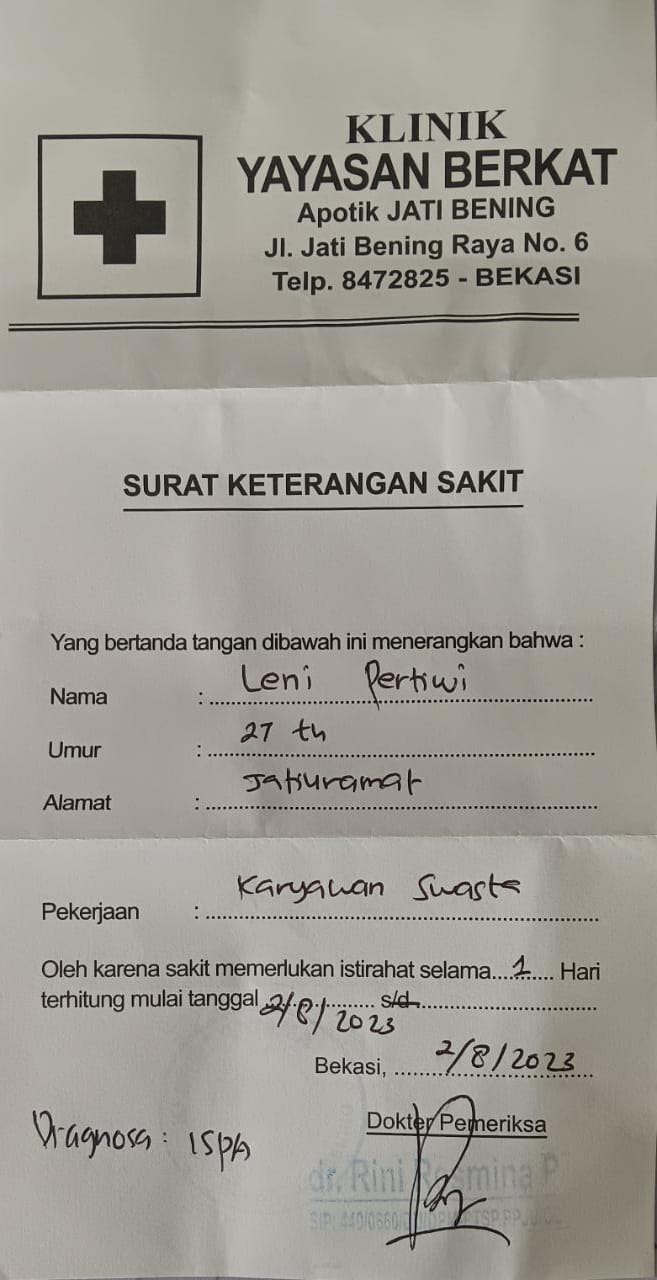 KLINIK
YAYASAN BERKAT
Apotik JATI BENING
Jl. Jati Bening Raya No. 6
Telp. 8472825 - BEKASI
SURAT KETERANGAN SAKIT
Yang bertanda tangan dibawah ini menerangkan bahwa :
Nama : Leni Pertiwi
Umur : 27 th
Alamat :
Pekerjaan : Karyawan Swasta
Oleh karena sakit memerlukan istirahat selama....1.... Hari
terhitung mulai tanggal 2/8/2023 s/d
Bekasi, 2/8/2023
Diagnosa : ISPA
Dokter Pemeriksa
dr. Rini